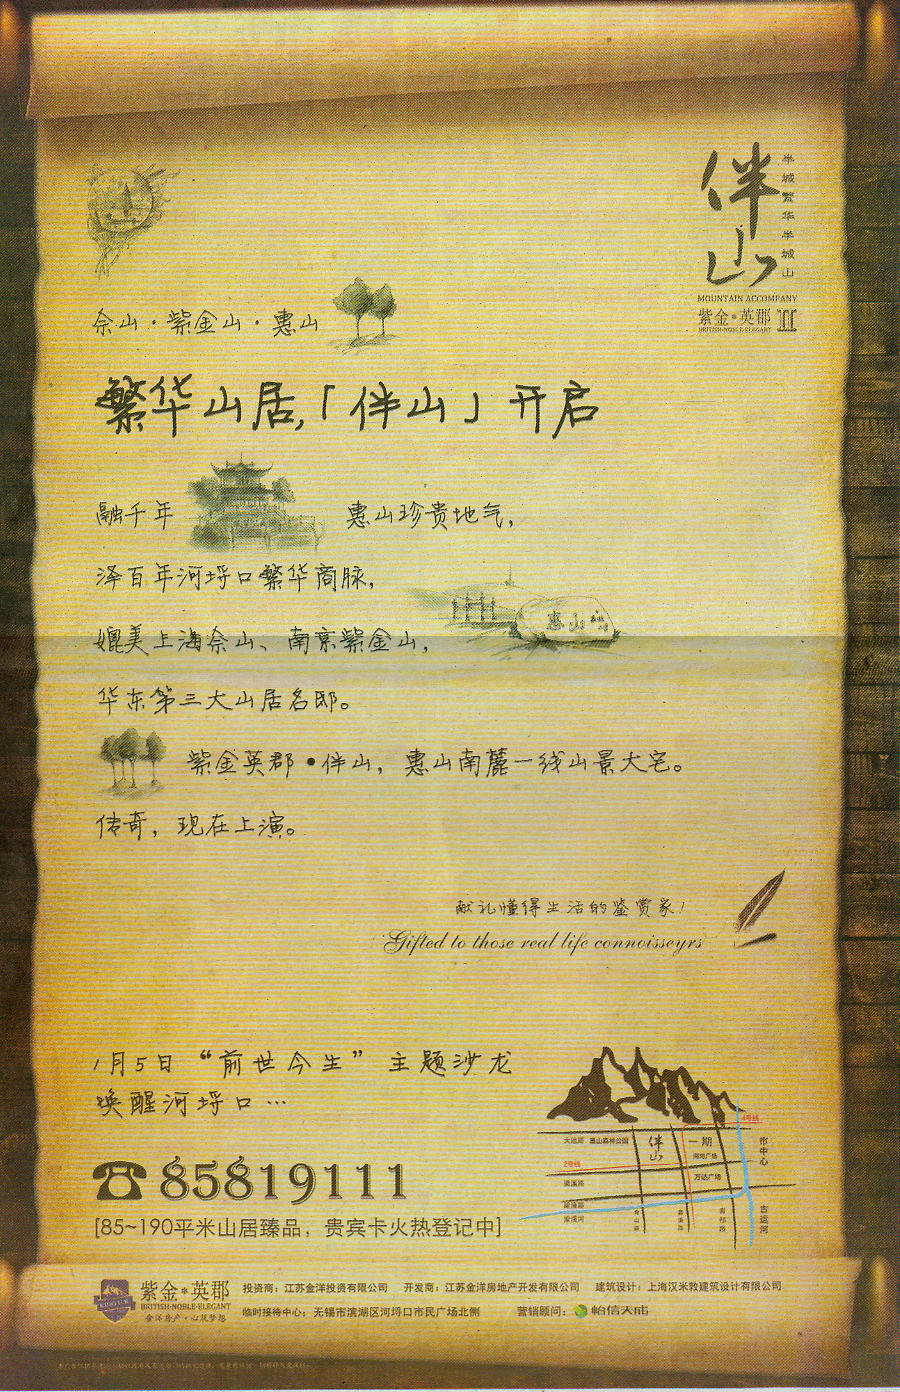 伴山
半城繁华半城山
MOUNTAIN ACCOMPANY
紫金·英郡 II
BRITISH·NOBLE·ELEGANT
佘山·紫金山·惠山
繁华山居,「伴山」开启
融千年 惠山珍贵地气,
泽百年河埒口繁华商脉,
媲美上海佘山、南京紫金山,
惠山
华东第三大山居名邸。
紫金英郡·伴山，惠山南麓一线山景大宅。
传奇，现在上演。
献礼懂得生活的鉴赏家!
Gifted to those real life connoisseyrs
1月5日“前世今生”主题沙龙
唤醒河埒口…
85819111
[85~190平米山居臻品，贵宾卡火热登记中]
4号线
大池路 惠山森林公园 伴山 一期
河埒广场
市中心
2号线
梁溪路 万达广场
梁溪河
古运河
紫金·英郡
BRITISH·NOBLE·ELEGANT
金洋房产·心筑梦想
投资商：江苏金洋投资有限公司 开发商：江苏金洋房地产开发有限公司 建筑设计：上海汉米敦建筑设计有限公司
临时接待中心：无锡市滨湖区河埒口市民广场北侧 营销顾问：怡信天成